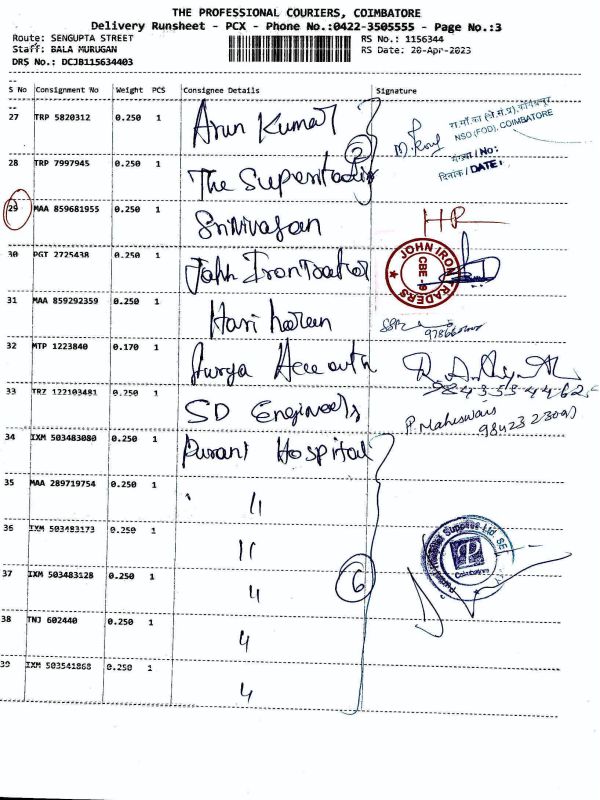 THE PROFESSIONAL COURIERS, COIMBATORE
Delivery Runsheet - PCX - Phone No.:0422-3505555 - Page No.:3
Route: SENGUPTA STREET RS No.: 1156344
Staff: BALA MURUGAN RS Date: 20-Apr-2023
DRS No.: DCJB115634403
S No Consignment No Weight PCS Consignee Details Signature
27 TRP 5820312 0.250 1 Arun Kumar
NSO (FOD), COIMBATORE
संख्या / No:
दिनांक / DATE:
2
28 TRP 7997945 0.250 1 The
29 MAA 859681955 0.250 1 Srinivasan HP
30 PGT 2725438 0.250 1 John Iron
JOHN IRON TRADERS
CBE -9
31 MAA 859292359 0.250 1 Hari
32 MTP 1223840 0.170 1
33 TRZ 122103481 0.250 1 SD Engineers
P. Maheswari
34 IXM 503483080 0.250 1 Purani Hospital
35 MAA 289719754 0.250 1 "
36 IXM 503483173 0.250 1 "
37 IXM 503483128 0.250 1 "
6
Coimbatore
38 TNJ 602440 0.250 1 "
39 IXM 503541868 0.250 1 "